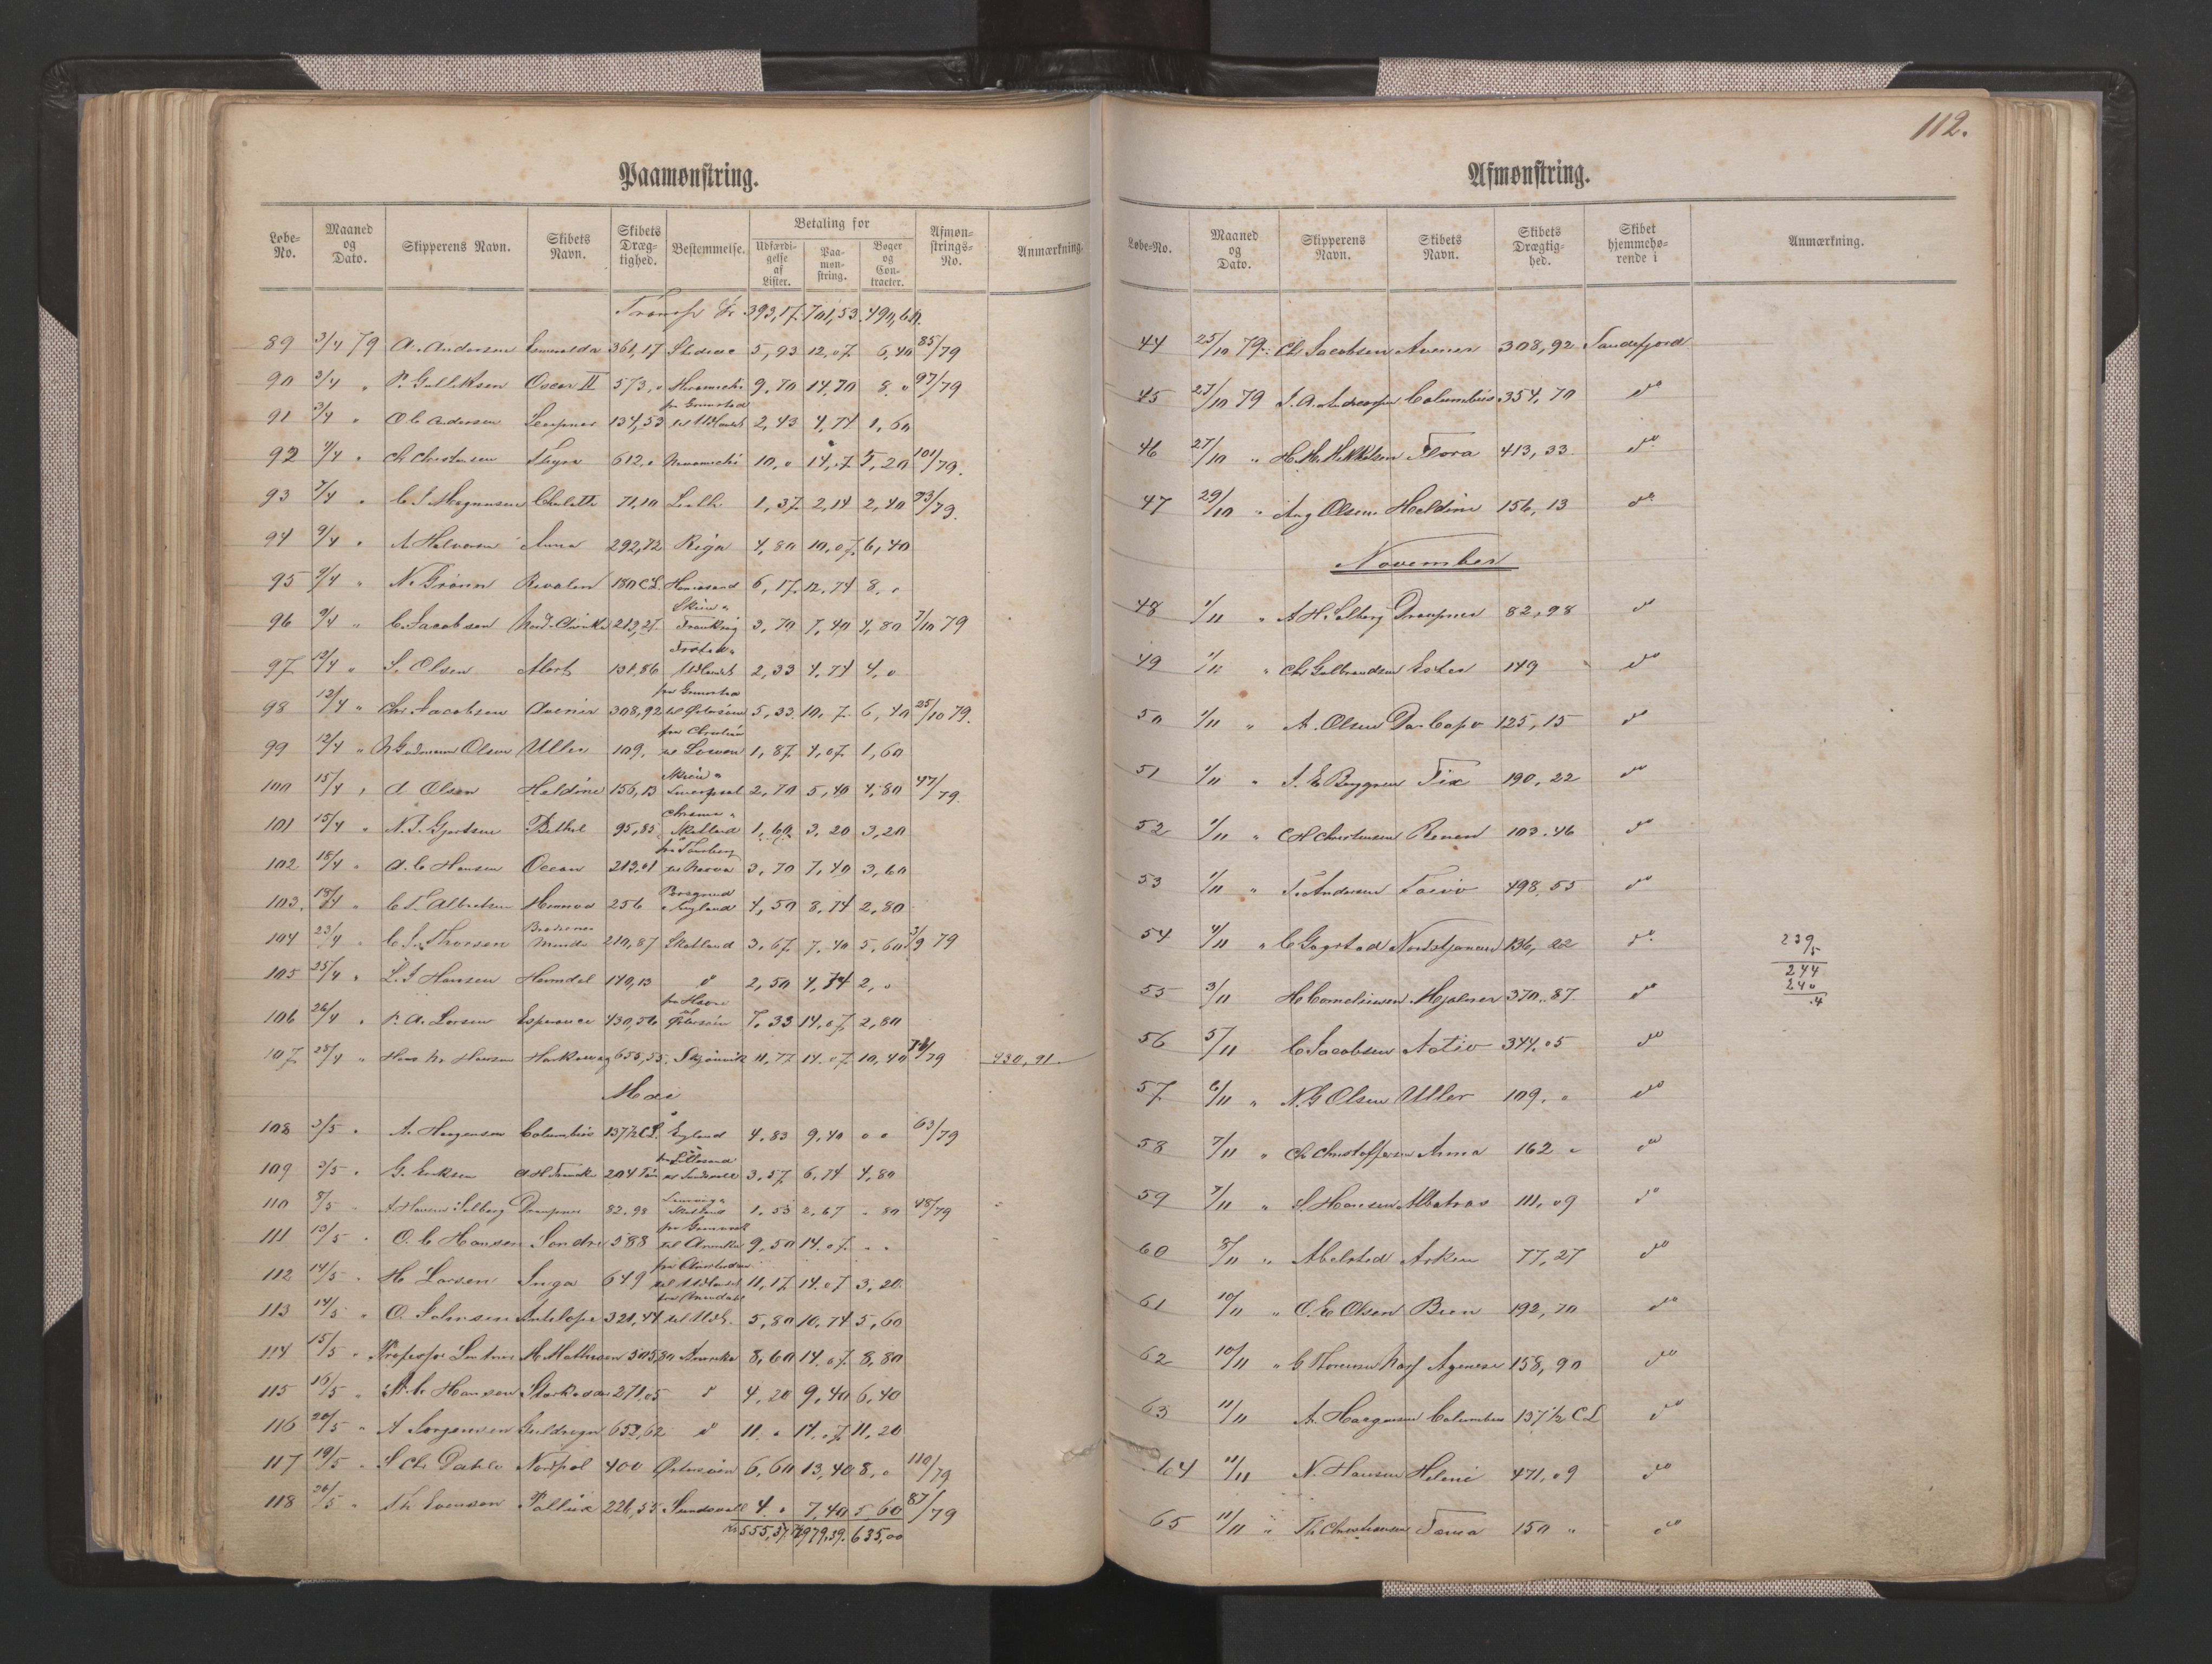 112.
Paamønstring.
Løbe-No. Maaned og Dato. Skipperens Navn. Skibets Navn. Skibets Dræg-tighed. Bestemmelse. Betaling for Udfærdi-gelse af Lister. Paa-møn-string. Bøger og Con-tracter. Afmøn-strings-No. Anmærkning.
Transp Kr 393,17 701,53 490,60
89 3/4 79 A. Andersen Esmeralda 361,17 5,93 12,07 6,40 85/79
90 3/4 " P. Gulliksen Oscar II 573," 9,70 14,70 8," 97/79
91 3/4 " O C Andersen 134,53 2,43 4,74 1,60
92 4/4 " Ch Christensen 612," 10," 14,07 5,20 101/79.
93 7/4 " C. J. Magnussen Charlotte 71,10 Leith 1,37 2,14 2,40 73/79.
94 9/4 " A Halvorsen Anna 292,72 Riga 4,80 10,07 6,40
95 9/4 " N. Grønn Rivalen 180 CL 6,17 12,74 8,"
96 9/4 " C. Jacobsen 212,27 3,70 7,40 4,80 7/10 79
97 12/4 " S. Olsen Alert 131,86 Udlandet 2,33 4,74 4,"
98 12/4 " Chr. Jacobsen Avenir 308,92 til Østersøen 5,33 10,7 6,40 25/10 79.
99 12/4 " N Gudmun Olsen Uller 109. 1,87 4,07 1,60
100 15/4 " A Olsen Heldine 156,13 Liverpool 2,70 5,40 4,80 47/79.
101 15/4 " N. J. Gjertsen Bethel 95,85 Skotland 1,60 3,20 3,20
102 18/4 " A. C Hansen Ocean 212,01 til Narva 3,70 7,40 3,60
103. 18/4 " C. F. Albretsen 256 England 4,50 8,74 2,80
104 23/4 " C. J. Thorsen Brødrenes Minde 210,87 Skotland 3,67 7,40 5,60 3/9 79
105 25/4 " L. J Hansen Heimdal 140,13 do 2,50 4,74 2,"
106 26/4 " P. A. Larsen Esperance 430,56 til Østersøen 7,33 14,07 2,80
107 28/4 " Hans Mr Hansen 655,55 11,77 14,07 10,40 /79 930,91
Mai
108 3/5 " A. Horgensen Columbus 137½ CL England 4,83 9,40 " " 63/79
109 3/5 " G. Eriksen 204 3,57 6,74 4,80
110 8/5 " A Hansen Solberg Draupner 82.98 Skotland 1,53 2,67 " 80 48/79
111 13/5 " O. C Hansen Søndre 588 til Amerika 9,50 14.07 " "
112 14/5 " H Larsen Inga 649 11,17 14.07 3,20
113 14/5 " O. Johnsen Antelope 321,44 til Udl. 5,80 10,74 5,60
114 15/5 " M Mathiesen 505,80 Amerika 8,60 14.07 8,80
115 16/5 " C Hansen 271,05 do 4,20 9,40 6,40
116 20/5 " A Jørgensen Guldregn 652,62 do 11. " 14.07 11,20
117 19/5 " S Ch. Dahle Nordpol 400 Østersøen 6,60 13,40 8," 110/79
118 20/5 " Th Evensen 226,55 Sundsvall 4. " 7,40 5 60 87/79
Kr 555,37 979,39. 635,00
Afmønstring.
Løbe-No. Maaned og Dato. Skipperens Navn. Skibets Navn. Skibets Drægtig-hed. Skibet hjemmehø-rende i Anmærkning.
44 25/10 79 Ch Jacobsen Avenir 308,92 Sandefjord
45 27/10 79 J. A. Andersen Columbus 354,70 do
46 27/10 " H. M. Mikkelsen Flora 413,33 do
47 29/10 " Aug Olsen Heldine 156,13 do
November
48 1/11 " A H. Solberg Draupner 82,98 do
49 1/11 " Chr Gulbrandsen Ester 149 " do
50 1/11 " A. Olsen Da Capo 125,15 do
51 1/11 " J. E Berggren Fix 190,22 do
52 1/11 " CH Christensen 103.46 do
53 1/11 " Fr. Andersen 498,55 do
54 4/11 " C Gogstad Nordstjernen 136,22 do
239
5
244
240
.4
55 3/11 H Corneliussen Mjølner 370.87 do
56 5/11 C. Jacobsen Activ 344.05 do
57 6/11 " N. G Olsen Uller 109. " do
58 7/11 " Ch Christoffersen Anna 162 " do
59 7/11 " S. Hansen Albatros 111,09 do
60 8/11 " Abelsted Arken 77,27 do
61 10/11 " O. E Olsen Bien 192,70 do
62 10/11 " 158,90 do
63 11/11 A. Horgensen Columbus 137½ CL do
64 11/11 N. Hansen Helene 471,09 do
65 11/11 " Th Christensen 150 " do